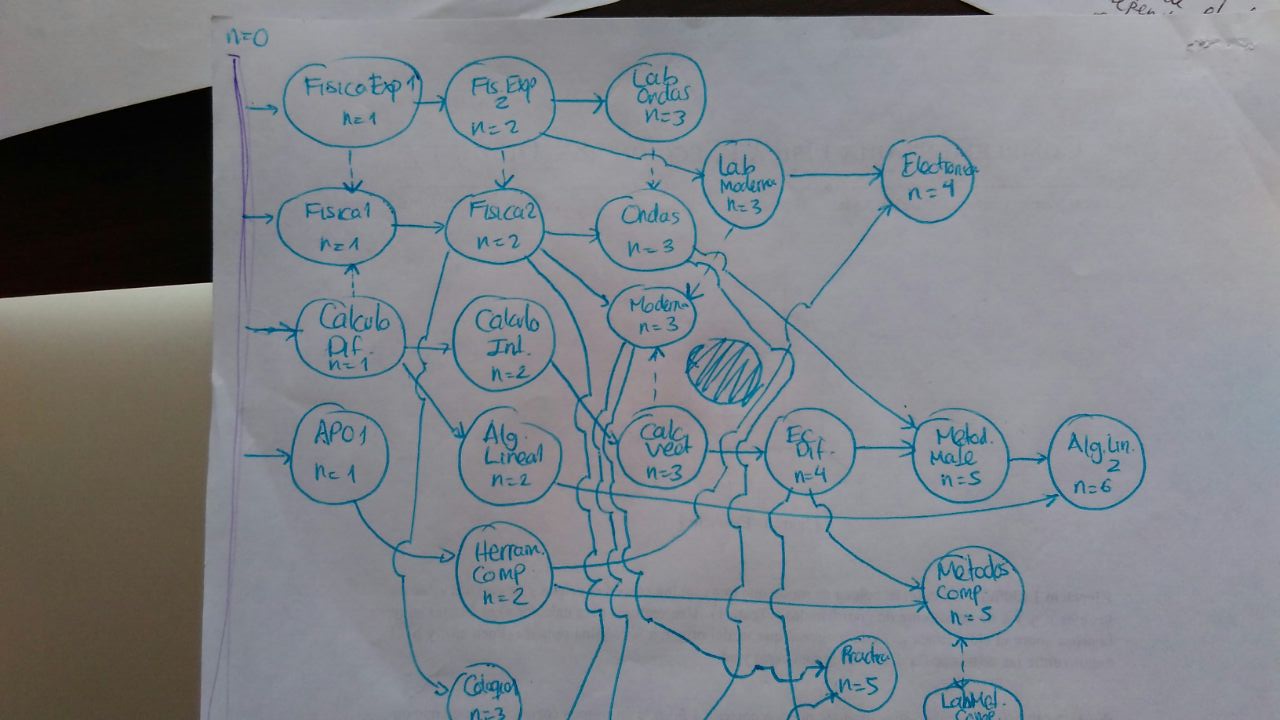 n=0
Fisica Exp 1
n=1
Fis. Exp
2
n=2
Lab.
Ondas
n=3
Lab
Moderna
n=3
Electronica
n=4
Fisica1
n=1
Fisica2
n=2
Ondas
n=3
Calculo
Dif.
n=1
Calculo
Int.
n=2
Moderna
n=3
APO1
n=1
Alg.
Lineal
n=2
Calc
Vect
n=3
Ec.
Dif.
n=4
Metod.
Mate
n=5
Alg. Lin.
2
n=6
Herram.
Comp.
n=2
Metodos
Comp
n=5
Practica
n=5
n=3
Lab Met.
Comp.